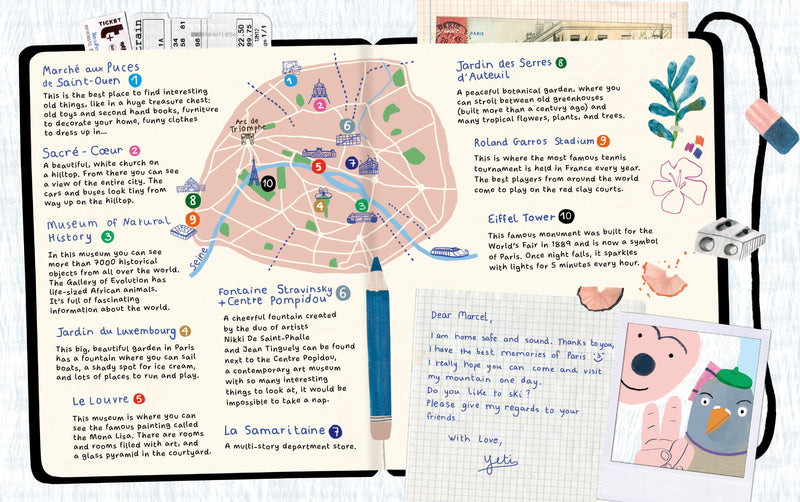 TICKET
t+
train
1A
34 58
58 81
22.50
99.75
1/1
PARIS
Marché aux Puces
de Saint-Ouen 1
This is the best place to find interesting
old things, like in a huge treasure chest:
old toys and second hand books, furniture
to decorate your home, funny clothes
to dress up in...
Sacré-Cœur 2
A beautiful, white church on
a hilltop. From there you can see
a view of the entire city. The
cars and buses look tiny from
way up on the hilltop.
Museum of Natural
History 3
In this museum you can see
more than 7000 historical
objects from all over the world.
The Gallery of Evolution has
life-sized African animals.
It's full of fascinating
information about the world.
Jardin du Luxembourg 4
This big, beautiful garden in Paris
has a fountain where you can sail
boats, a shady spot for ice cream,
and lots of places to run and play.
Le Louvre 5
This museum is where you can
see the famous painting called
the Mona Lisa. There are rooms
and rooms filled with art, and
a glass pyramid in the courtyard.
1
2
Arc de
Triomphe
6
5
7
10
8
9
4
3
Seine
Fontaine Stravinsky
+ Centre Pompidou 6
A cheerful fountain created
by the duo of artists
Nikki De Saint-Phalle
and Jean Tinguely can be found
next to the Centre Popidou,
a contemporary art museum
with so many interesting
things to look at, it would be
impossible to take a nap.
La Samaritaine 7
A multi-story department store.
Jardin des Serres
d'Auteuil 8
A peaceful botanical garden, where you
can stroll between old greenhouses
(built more than a century ago) and
many tropical flowers, plants, and trees.
Roland Garros Stadium 9
This is where the most famous tennis
tournament is held in France every year.
The best players from around the world
come to play on the red clay courts.
Eiffel Tower 10
This famous monument was built for the
World's Fair in 1889 and is now a symbol
of Paris. Once night falls, it sparkles
with lights for 5 minutes every hour.
Dear Marcel,
I am home safe and sound. Thanks to you,
I have the best memories of Paris
I really hope you can come and visit
my mountain one day.
Do you like to ski?
Please give my regards to your
friends.
With Love,
Yeti